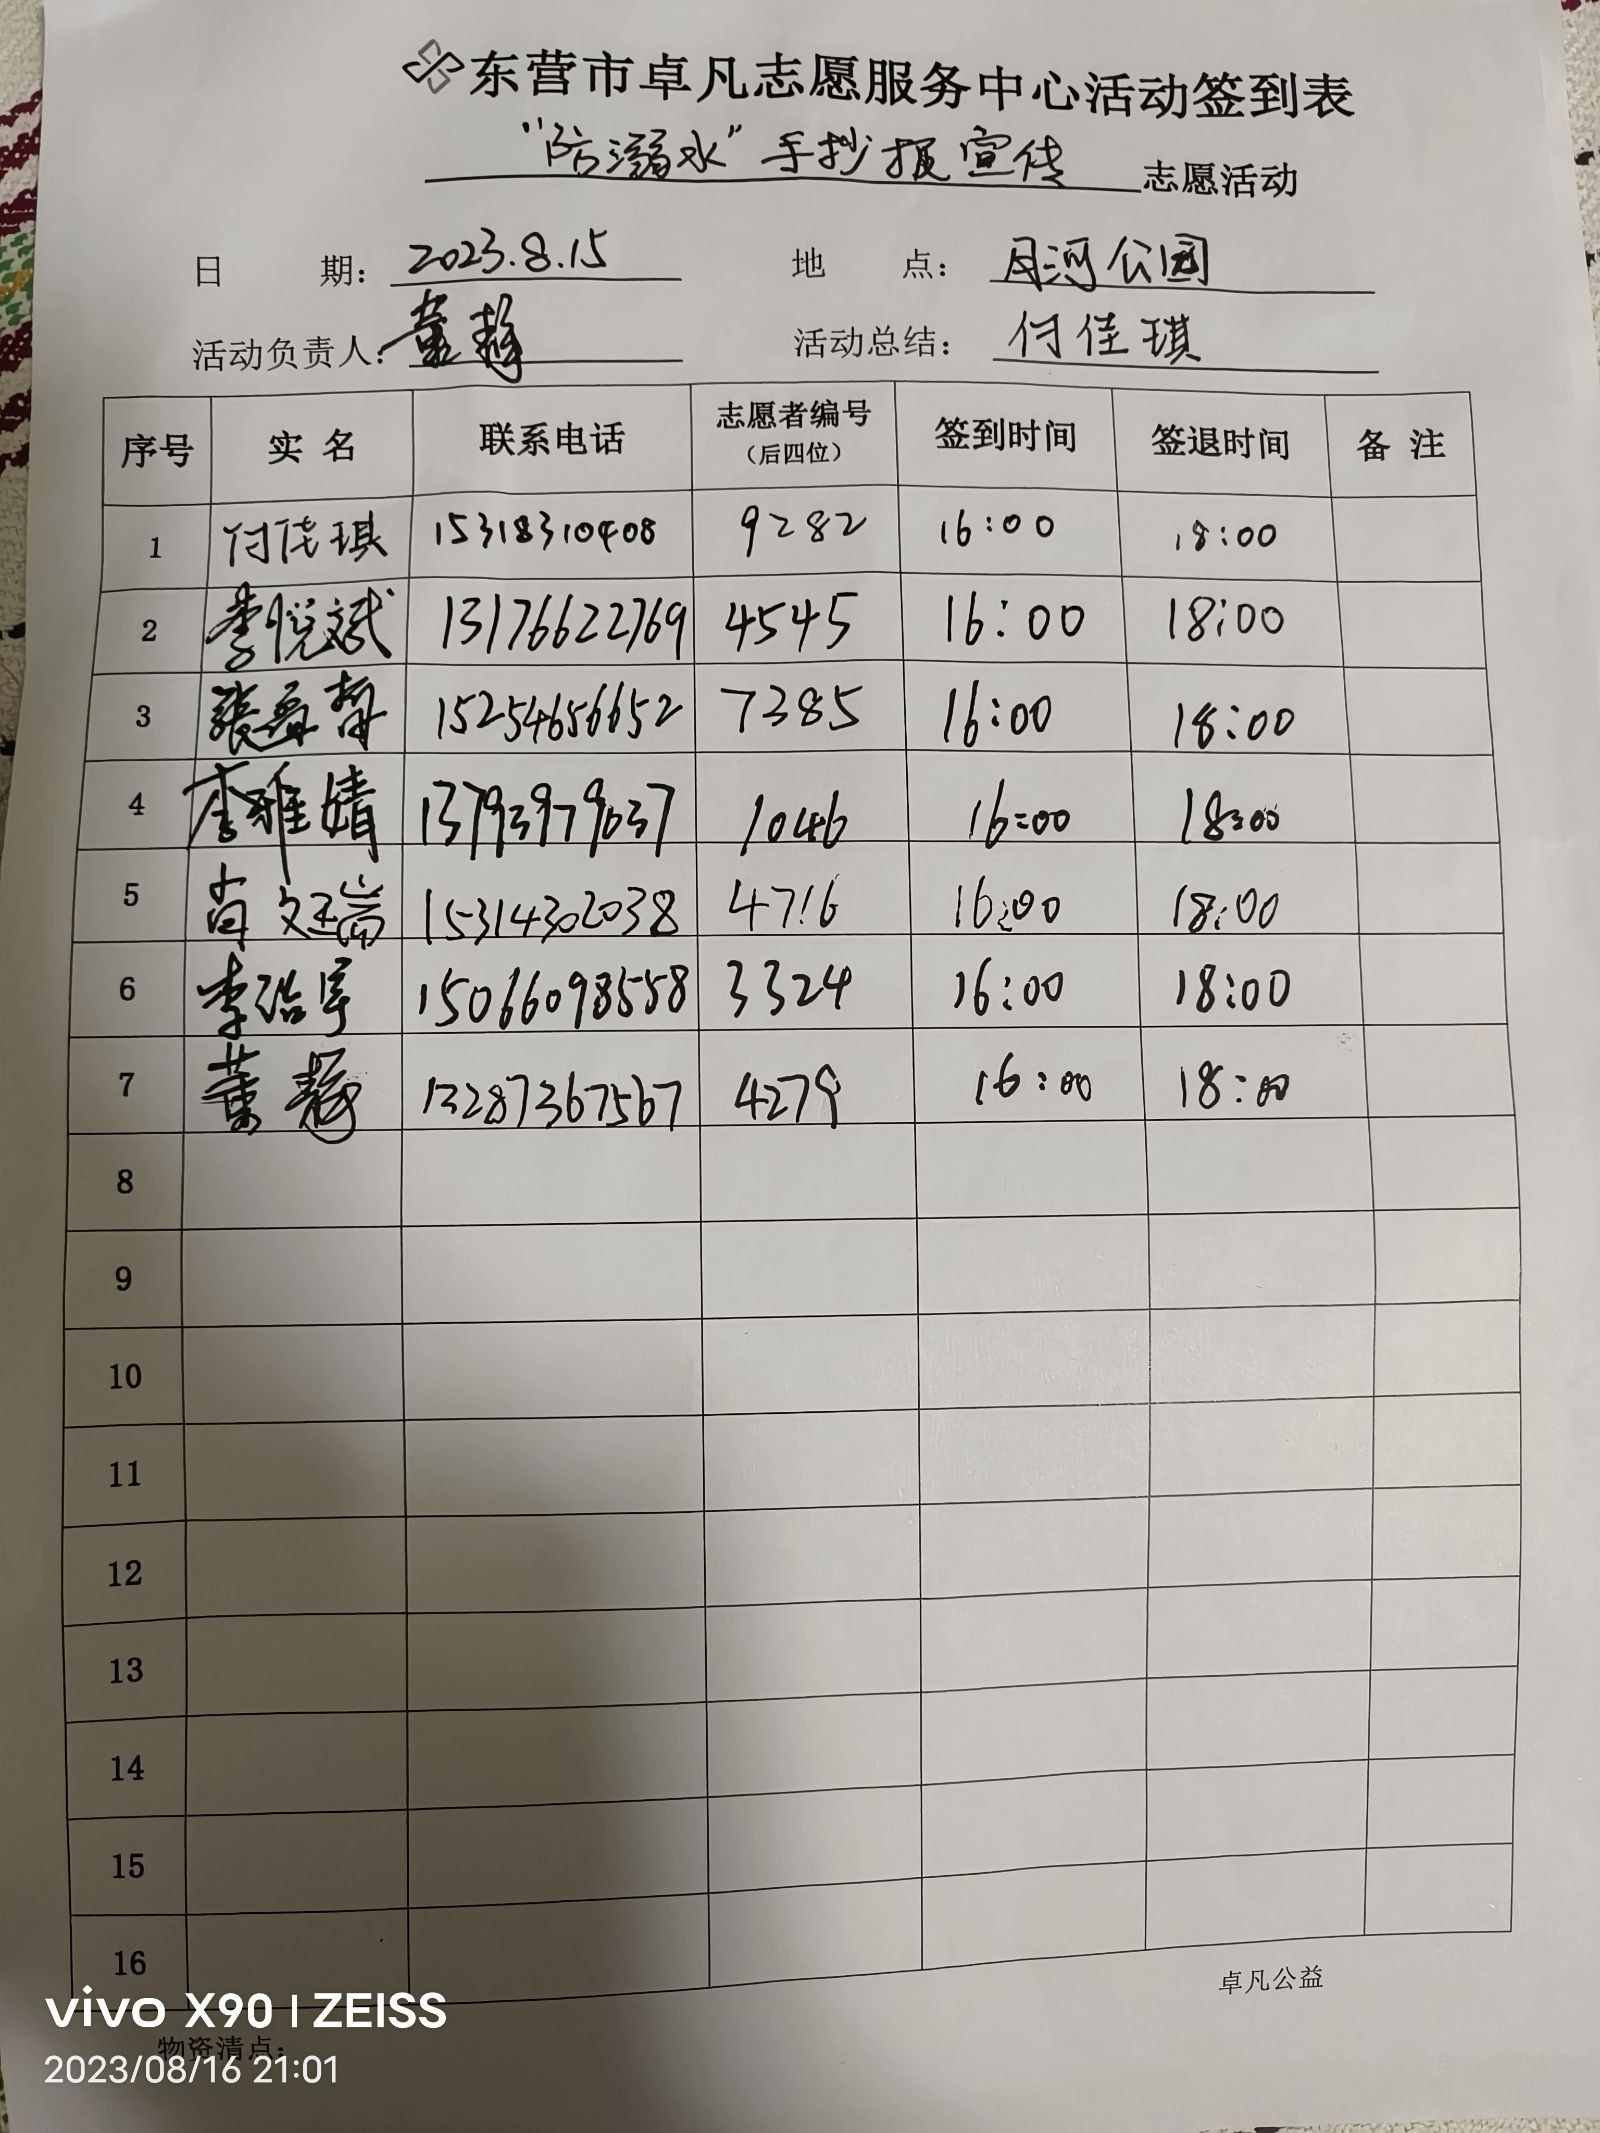 东营市卓凡志愿服务中心活动签到表
"防溺水"手抄报宣传志愿活动
日 期: 2023.8.15 地 点: 月河公园
活动负责人: 董静 活动总结: 付佳琪
序号 实名 联系电话 志愿者编号（后四位） 签到时间 签退时间 备注
1 付佳琪 15318310408 9282 16:00 18:00
2 李悦斌 13176622769 4545 16:00 18:00
3 张 哲 15254656652 7385 16:00 18:00
4 李雅婧 13793979637 1046 16:00 18:00
5 肖文瑞 15314302038 4716 16:00 18:00
6 李 15066098558 3324 16:00 18:00
7 董静 13287367567 4279 16:00 18:00
8
9
10
11
12
13
14
15
16
卓凡公益
物资清点:
vivo X90 | ZEISS
2023/08/16 21:01